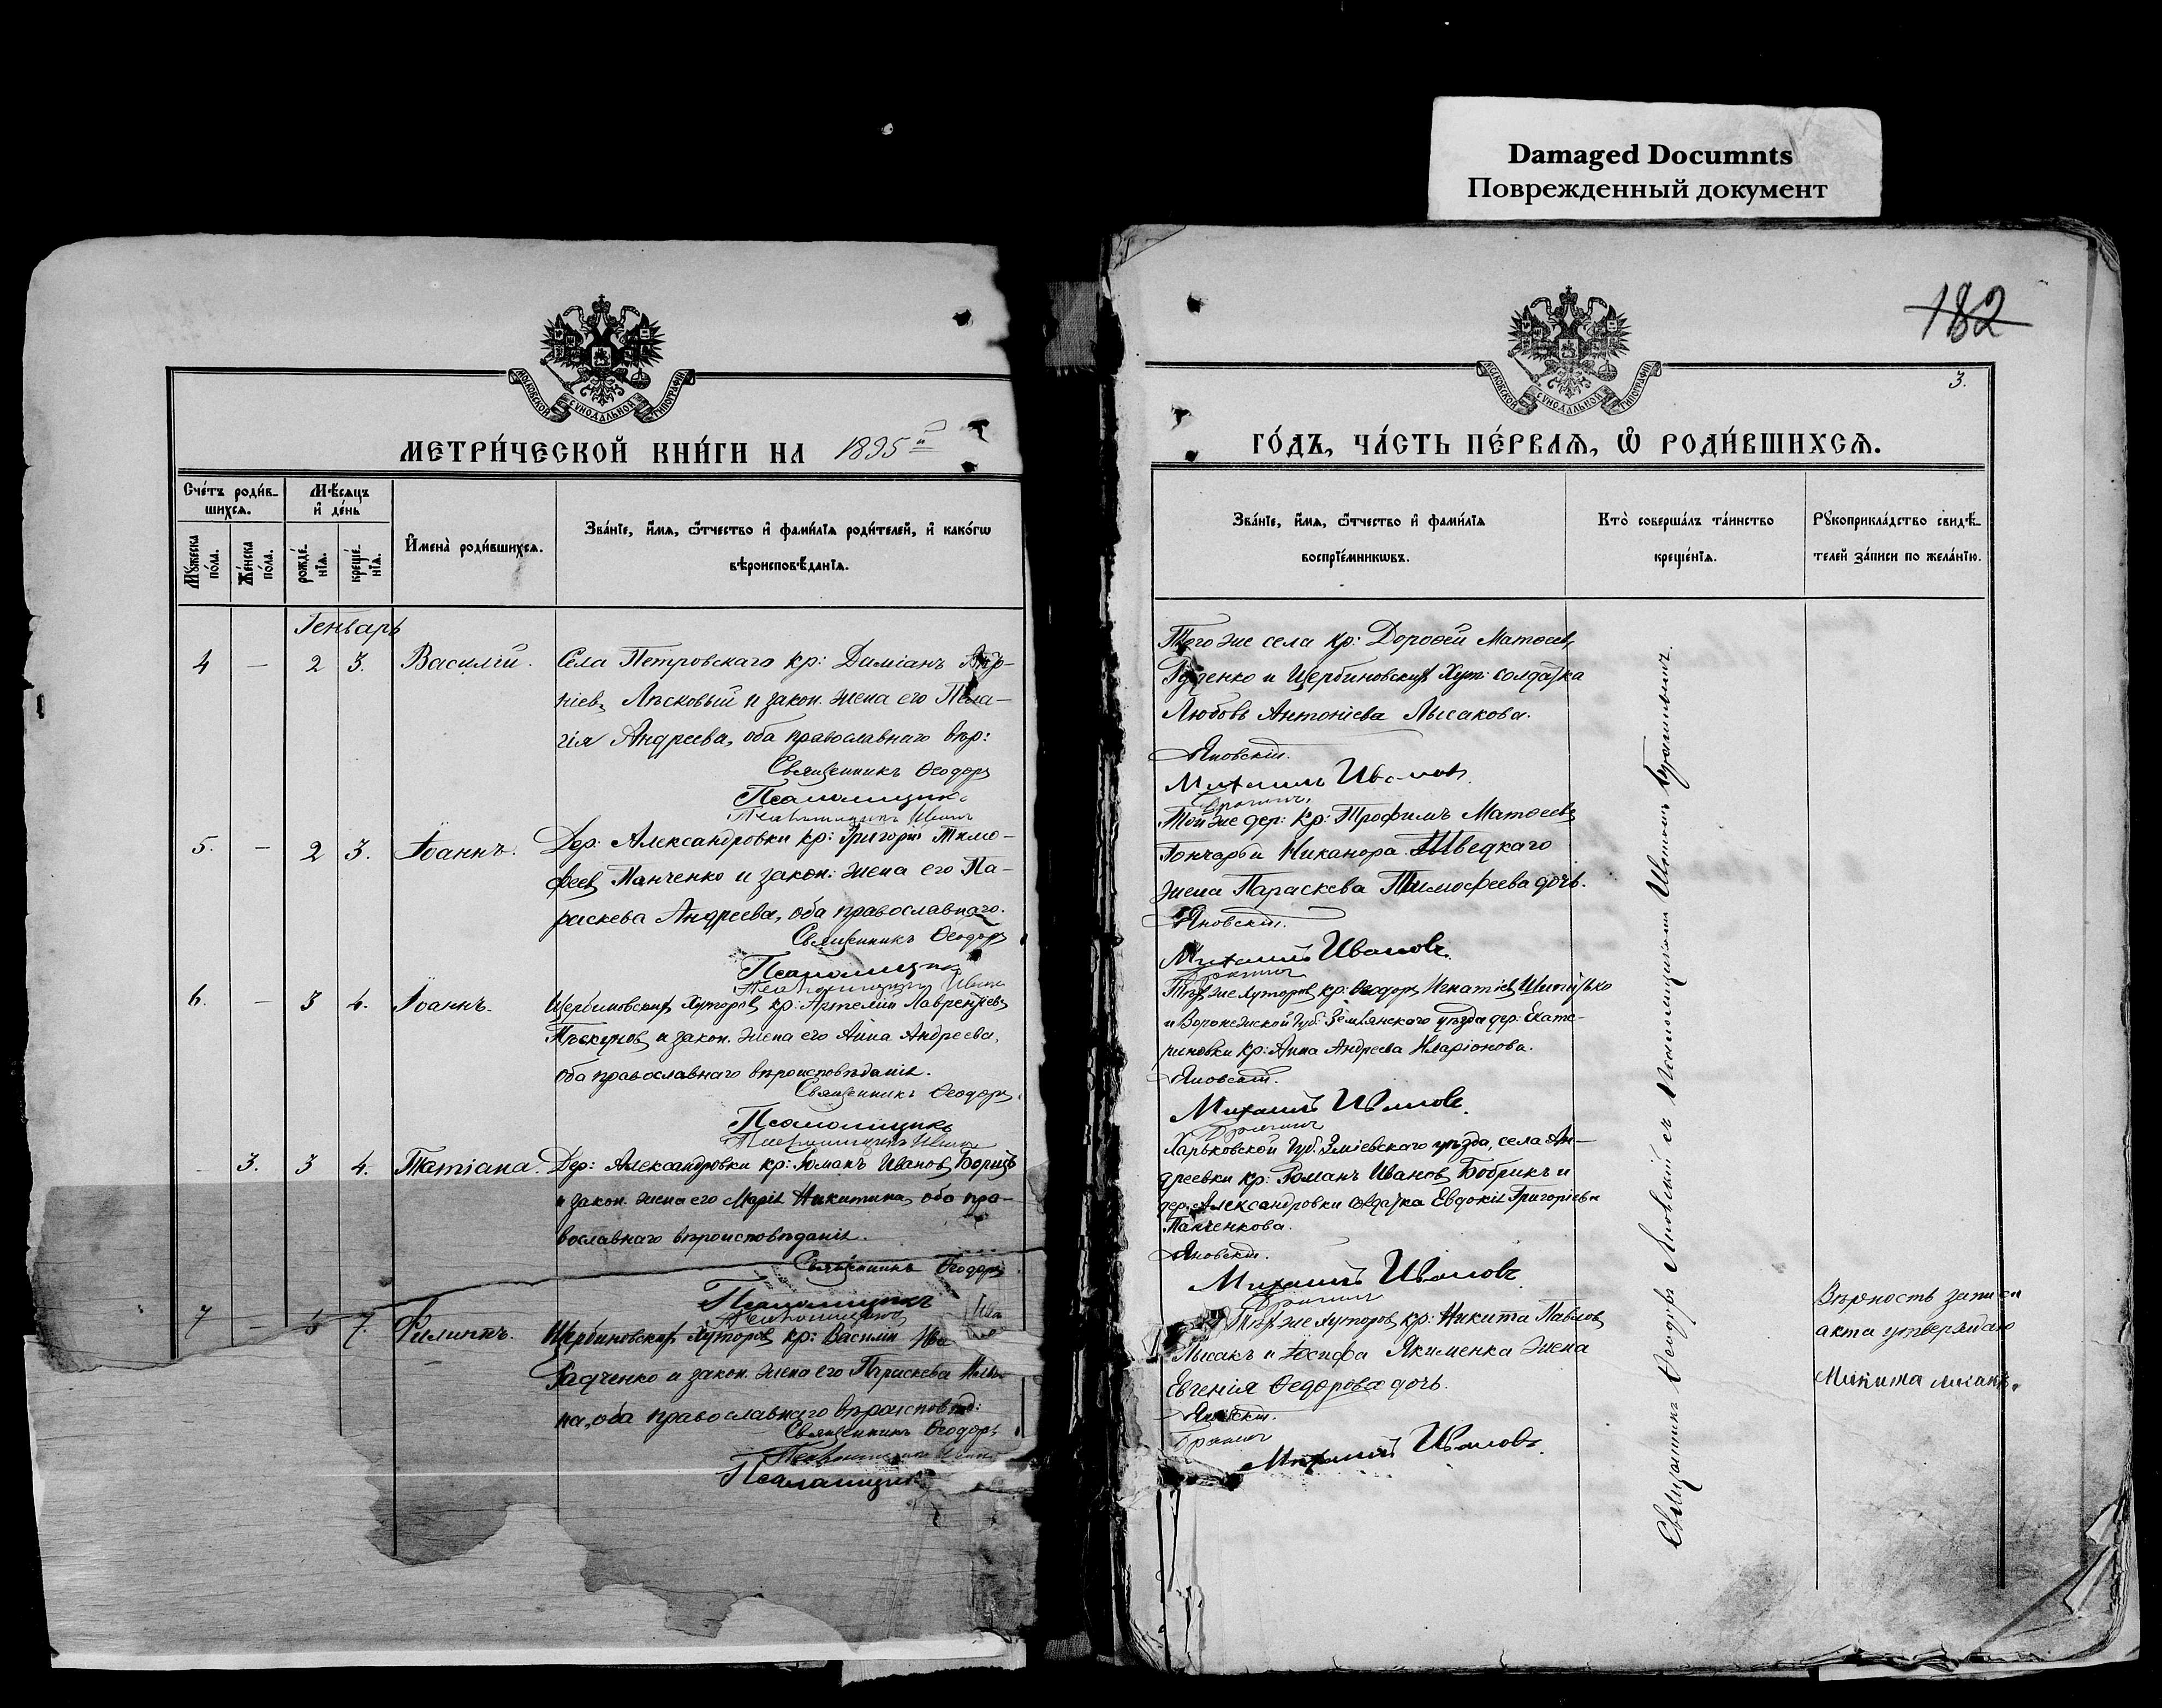 Damaged Documnts
Поврежденный документ
МОСКОВСКОЙ СѴНОДАЛЬНОЙ ТИПОГРАФІИ
МЕТРИ́ЧЕСКОЙ КНИ́ГИ НА 1895 й
Сче́тъ роди́в-
шихсѧ.
Мѣ́сѧцъ
и҆ де́нь
Мꙋ́жеска
по́ла.
Же́нска
по́ла.
рожде́-
нїѧ.
креще́-
нїѧ.
И҆мена̀ роди́вшихсѧ.
Зва́нїе, и҆́мѧ, ѻ҆́тчество и҆ фами́лїѧ роди́телей, и҆ како́гѡ
вѣроисповѣ́данїѧ.
Генварь
4 — 2 3. Василій. Села Петровскаго кр: Даміанъ
ніевъ Лѣсковый и закон. жена его Пела-
гія Андреева, оба православнаго вѣр:
Священникъ Ѳеодоръ
Псаломщикъ
5. — 2 3. Іоаннъ. Дер: Александровки кр: Григорій Тимо-
феевъ Панченко и закон: жена его Па-
раскева Андреева, оба православнаго.
Священникъ Ѳеодоръ
Псаломщикъ
6. — 3 4. Іоаннъ. Щербиновскихъ Хуторовъ кр: Артемій Лаврентіевъ
и закон. жена его Анна Андреева,
оба православнаго вѣроисповѣданія.
Священникъ Ѳеодоръ
Псаломщикъ
3. 3 4. Татіана. Дер: Александровки кр: Романъ Ивановъ
и закон. жена его Марія Никитина, оба пра-
вославнаго вѣроисповѣданія.
Священникъ Ѳеодоръ
Псаломщикъ
7 — 7. Филиппъ. Щербиновскихъ Хуторовъ кр: Василій
Радченко и закон. жена его Параскева
на, оба православнаго вѣроисповѣд:
Священникъ Ѳеодоръ
Псаломщикъ
182
3.
МОСКОВСКОЙ СѴНОДАЛЬНОЙ ТИПОГРАФІИ
ГО́ДЪ, ЧА́СТЬ ПЕ́РВАѦ, Ѡ҆ РОДИ́ВШИХСѦ.
Зва́нїе, и҆́мѧ, ѻ҆́тчество и҆ фами́лїѧ
воспрїе́мникѡвъ.
Кто̀ соверша́лъ та́инство
креще́нїѧ.
Рꙋкоприкла́дство свидѣ́-
телей за́писи по жела́нїю.
Того же села кр: Дороѳей Матѳеевъ
и Щербиновскихъ Хут: солдатка
Любовь Антоніева Лысакова.
Яновскій.
Михаилъ Ивановъ
Той же дер: кр: Трофимъ Матѳеевъ
Гончаръ и Никанора Швецкаго
жена Параскева Тимофеева дочь.
Яновскій.
Михаилъ Ивановъ.
Тѣхъ же хуторовъ кр: Ѳеодоръ Игнатіевъ
и Воронежской Губ: Землянскаго уѣзда дер: Екате-
риновки кр: Анна Андреева Иларіонова.
Яновскій.
Михаилъ Ивановъ.
Харьковской Губ: Зміевскаго уѣзда, села Ан-
дреевки кр: Романъ Ивановъ Бобрикъ и
дер. Александровки солдатка Евдокія Григоріева
Панченкова.
Яновскій.
Михаилъ Ивановъ
Тѣхъ же Хуторовъ кр: Никита Павловъ
Лысакъ и Іосифа Якименка жена
Евгенія Ѳедорова дочь.
Яновскій.
Михаилъ Ивановъ.
Священникъ Ѳеодоръ Яновскій съ Псаломщикомъ
Вѣрность записи
акта утверждаю
Микита лисакъ.